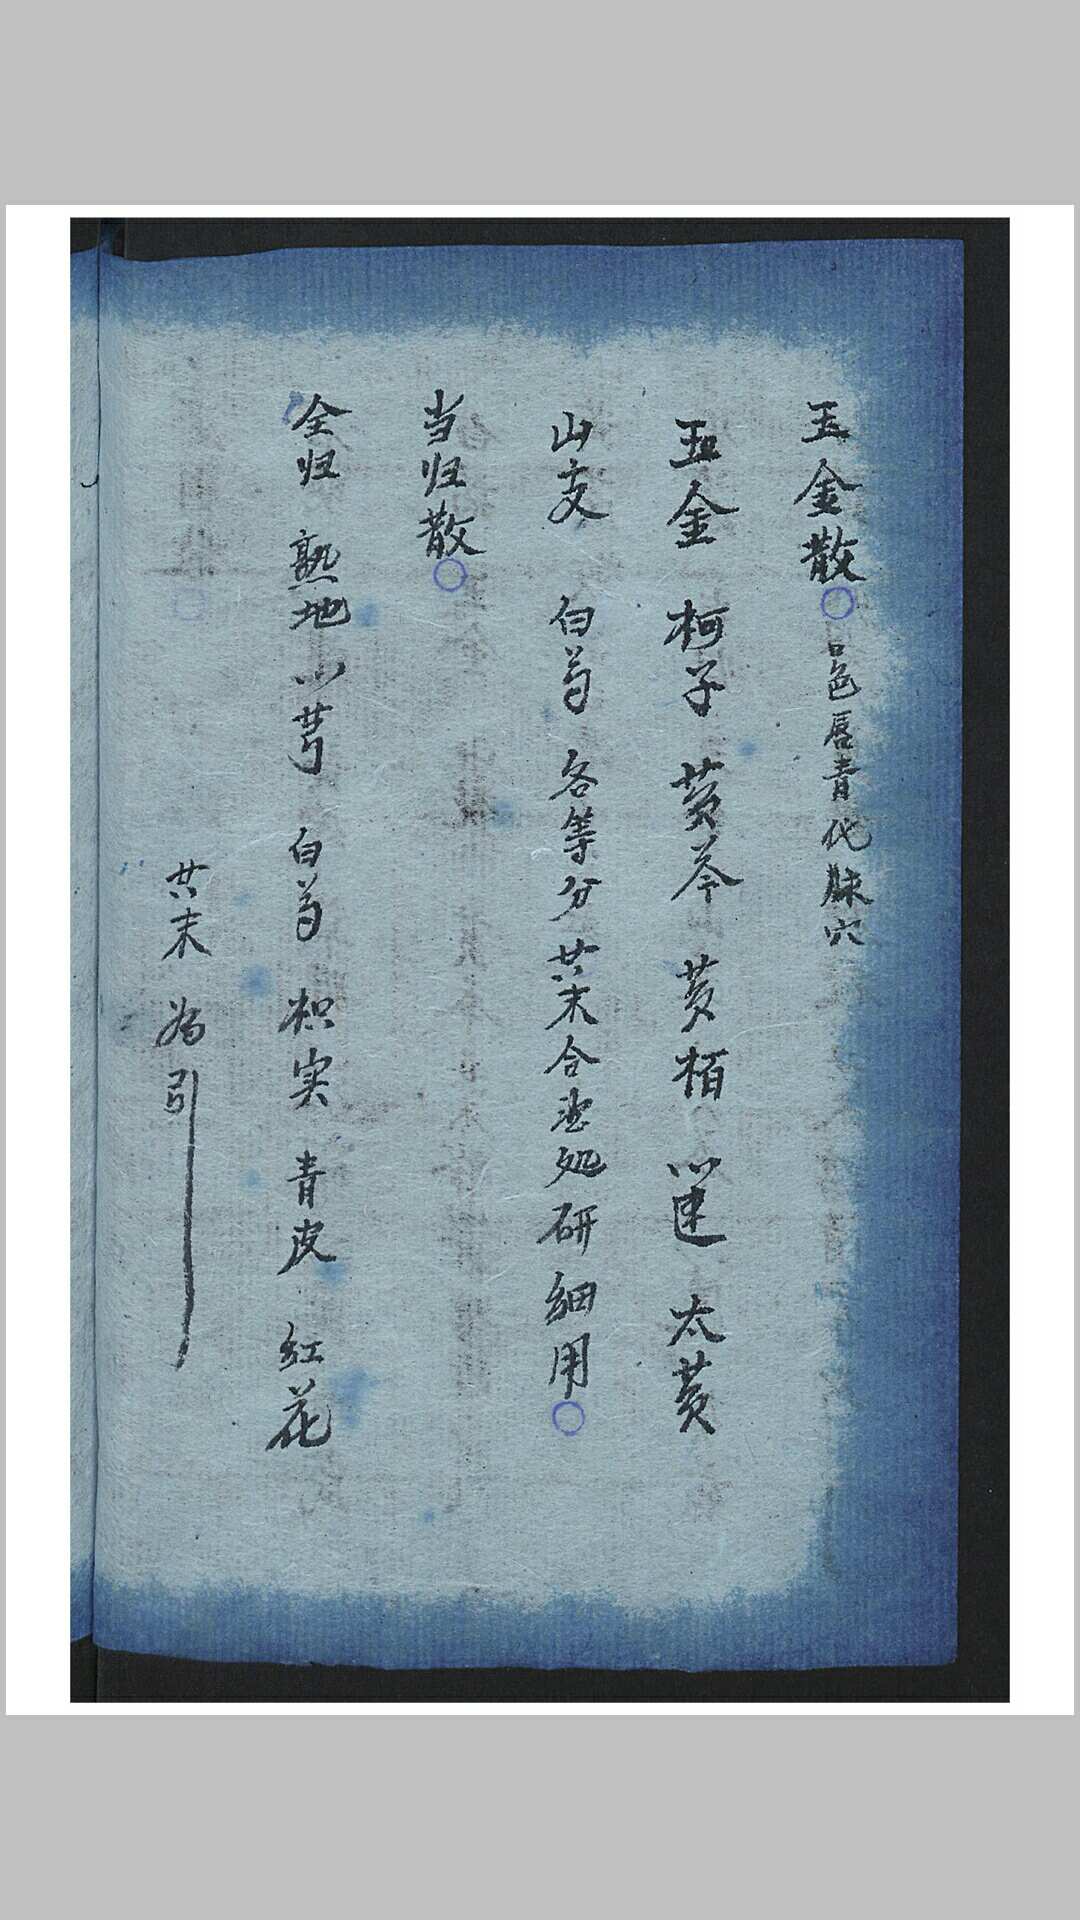 玉金散○口色唇青化脉穴
玉金 柯子 黄芩 黄栢 川連 大黄
山支 白芍 各等分共末合 处研細用○
当归散○
全归 熟地 川芎 白芍 枳实 青皮 红花
共末为引